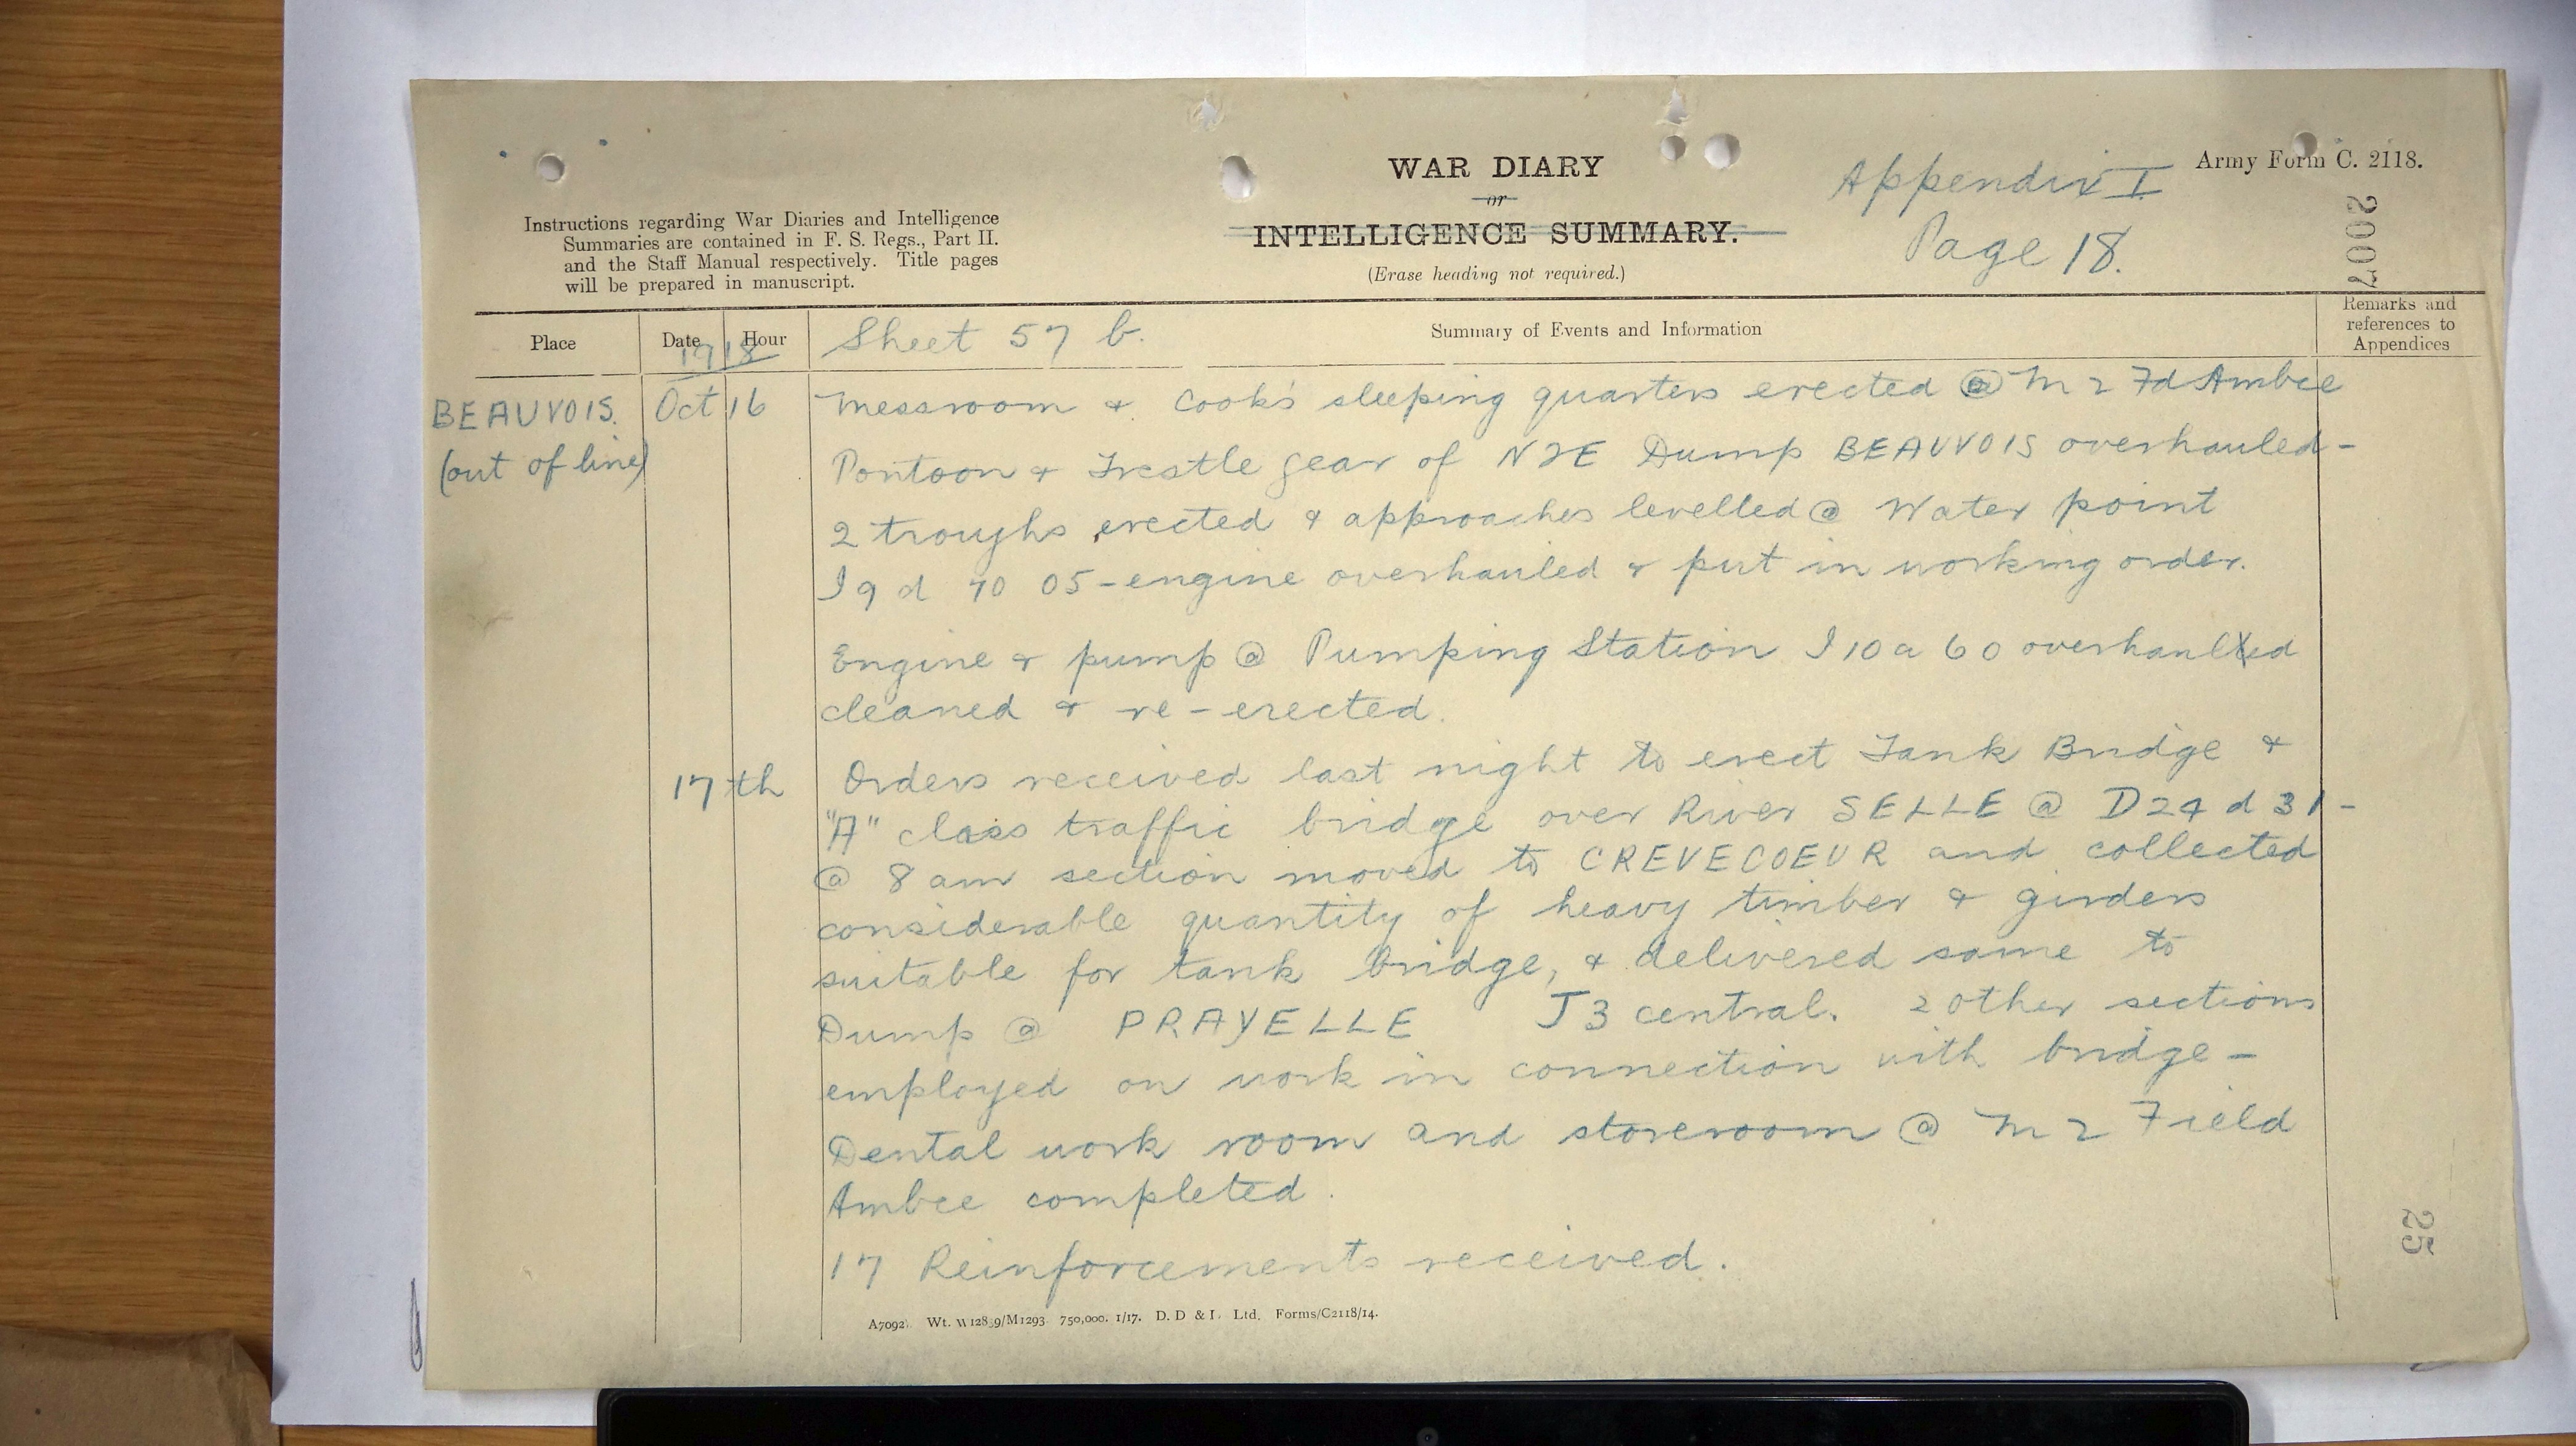 WAR DIARY
or
INTELLIGENCE SUMMARY.
(Erase heading not required.)
Appendix I
Page 18.
Army Form C. 2118.
2007
Instructions regarding War Diaries and Intelligence
Summaries are contained in F. S. Regs., Part II.
and the Staff Manual respectively. Title pages
will be prepared in manuscript.
Place Date Hour Sheet 57 b. Summary of Events and Information
Remarks and
references to
Appendices
1918
BEAUVOIS. Oct 16 Messroom & Cook's sleeping quarters erected @ M 2 Fd Ambce
(out of line) Pontoon & Trestle gear of NZE Dump BEAUVOIS overhauled -
2 troughs erected & approaches levelled @ Water point
I 9 d 70 05 - engine overhauled & put in working order.
Engine & pump @ Pumping Station I 10 a 60 overhauled
cleaned & re-erected.
17th Orders received last night to erect Tank Bridge &
"A" class traffic bridge over River SELLE @ D 24 d 31 -
@ 8 am section moved to CREVECOEUR and collected
considerable quantity of heavy timber & girders
suitable for tank bridge, & delivered same to
Dump @ PRAYELLE J 3 central. 2 other sections
employed on work in connection with bridge -
Dental work room and storeroom @ M 2 Field
Ambce completed.
17 Reinforcements received.
25
A7092. Wt. W1289/M1293. 750,000. 1/17. D. D & L. Ltd. Forms/C2118/14.